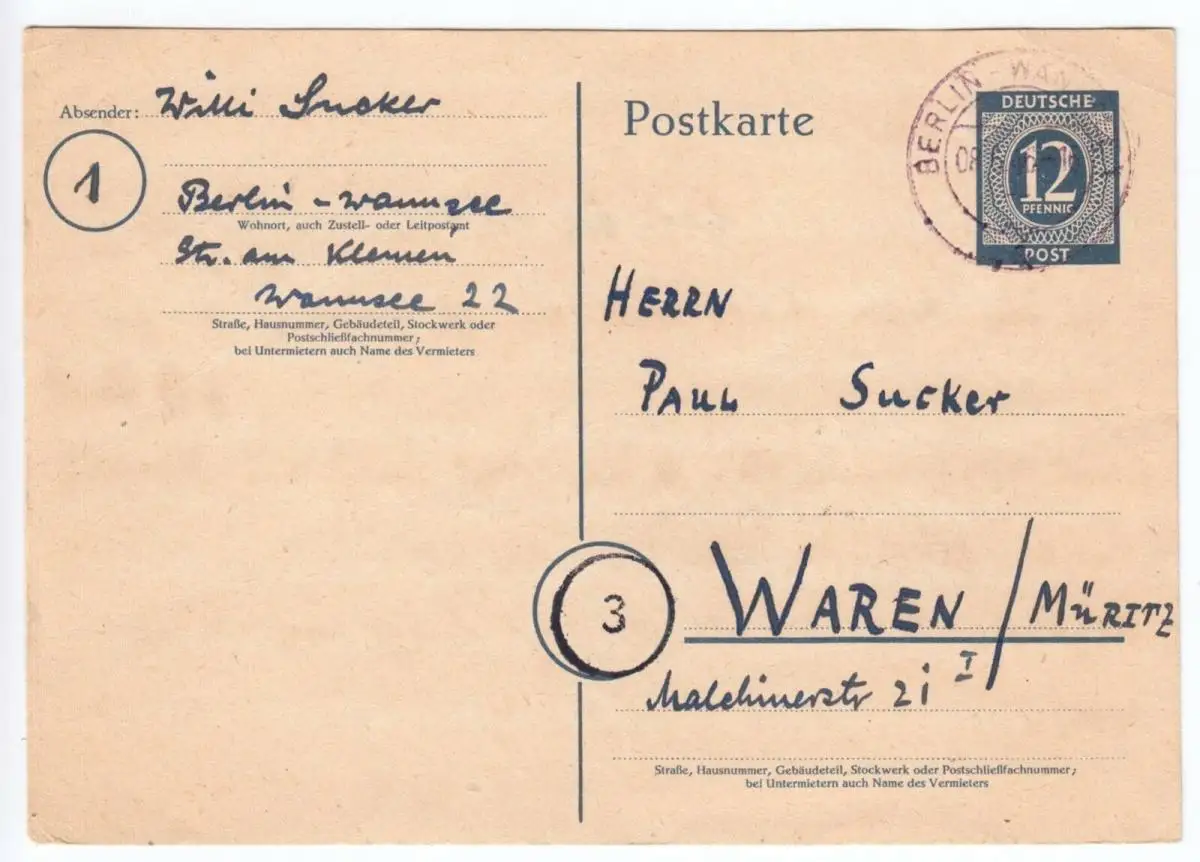 Absender: Willi Sucker
1
Berlin - Wannsee
Wohnort, auch Zustell- oder Leitpostamt
Str. am Kleinen
Wannsee 22
Straße, Hausnummer, Gebäudeteil, Stockwerk oder
Postschließfachnummer;
bei Untermietern auch Name des Vermieters
Postkarte
BERLIN - WAN
DEUTSCHE
12
PFENNIG
POST
HERRN
PAUL Sucker
3
WAREN / MÜRITZ
Malchinerstr 21 I
Straße, Hausnummer, Gebäudeteil, Stockwerk oder Postschließfachnummer;
bei Untermietern auch Name des Vermieters